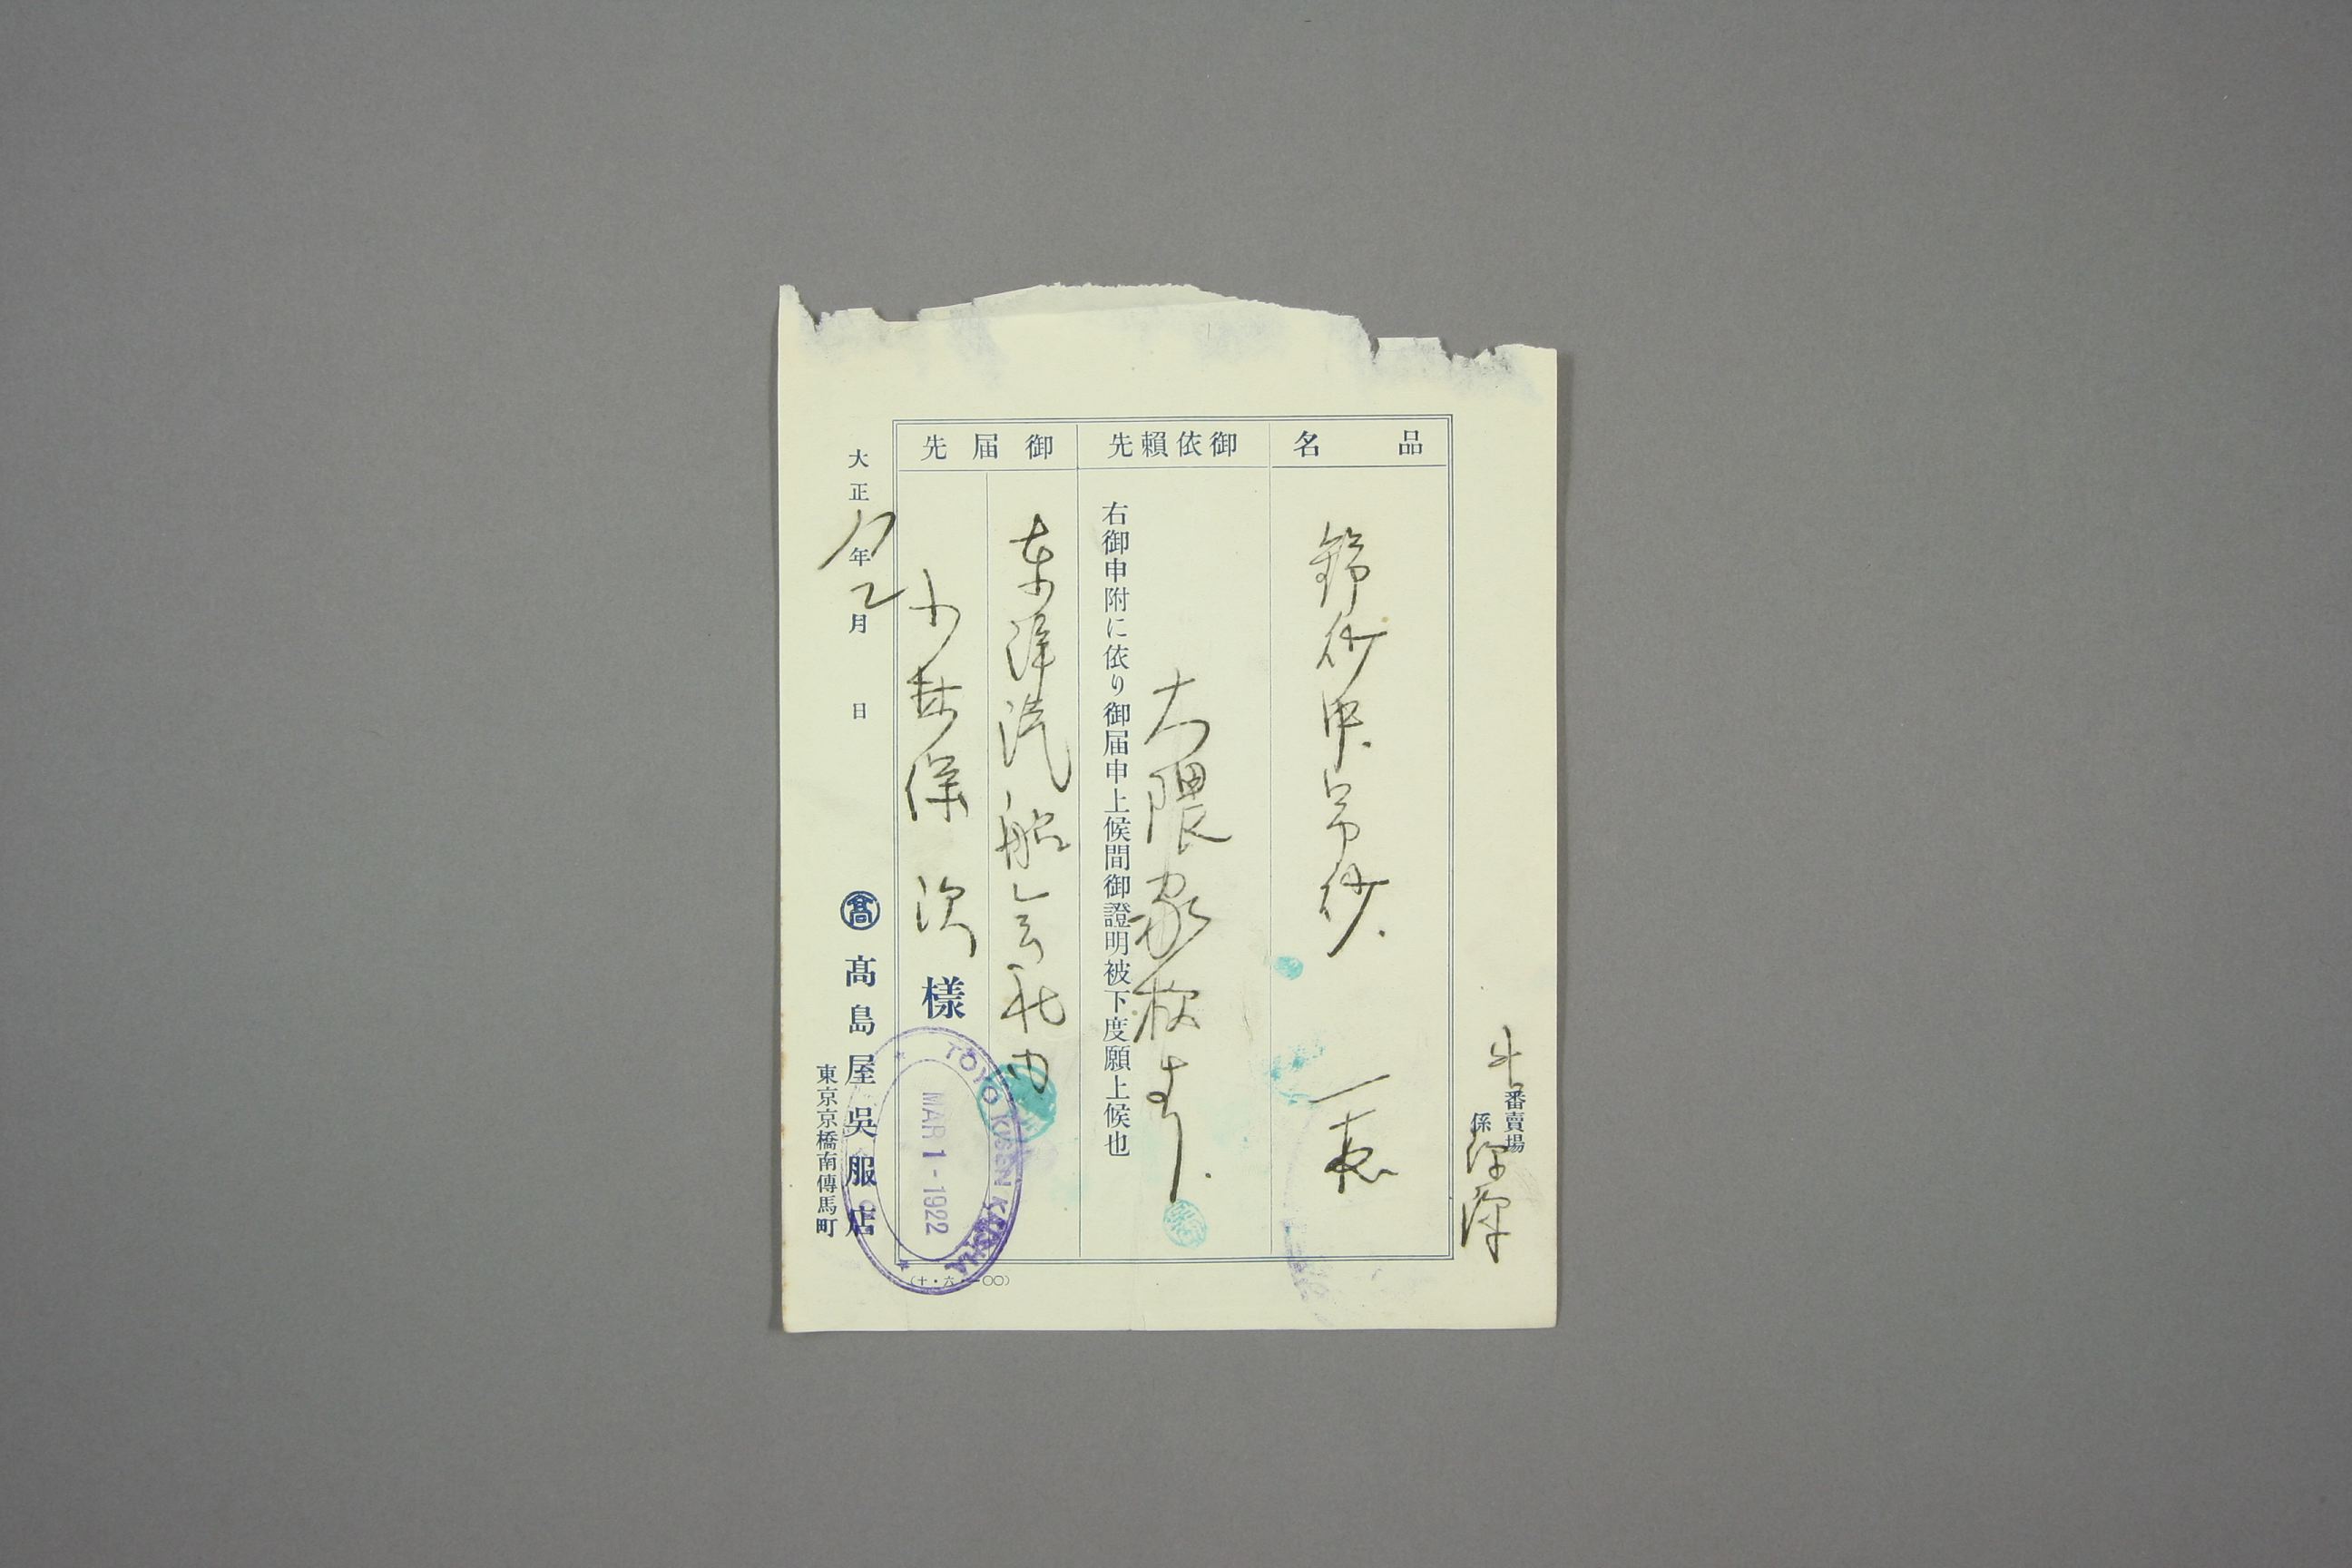 番賣場
係
品名
一
御依賴先
大隈家様
右御申附に依り御届申上候間御證明被下度願上候也
御届先
東洋汽船会社内
小林保次様
大正11年2月 日
高 高島屋吳服店
東京京橋南傳馬町
(十・六・一〇〇)
TOYO KISEN KAISHA
MAR 1 - 1922